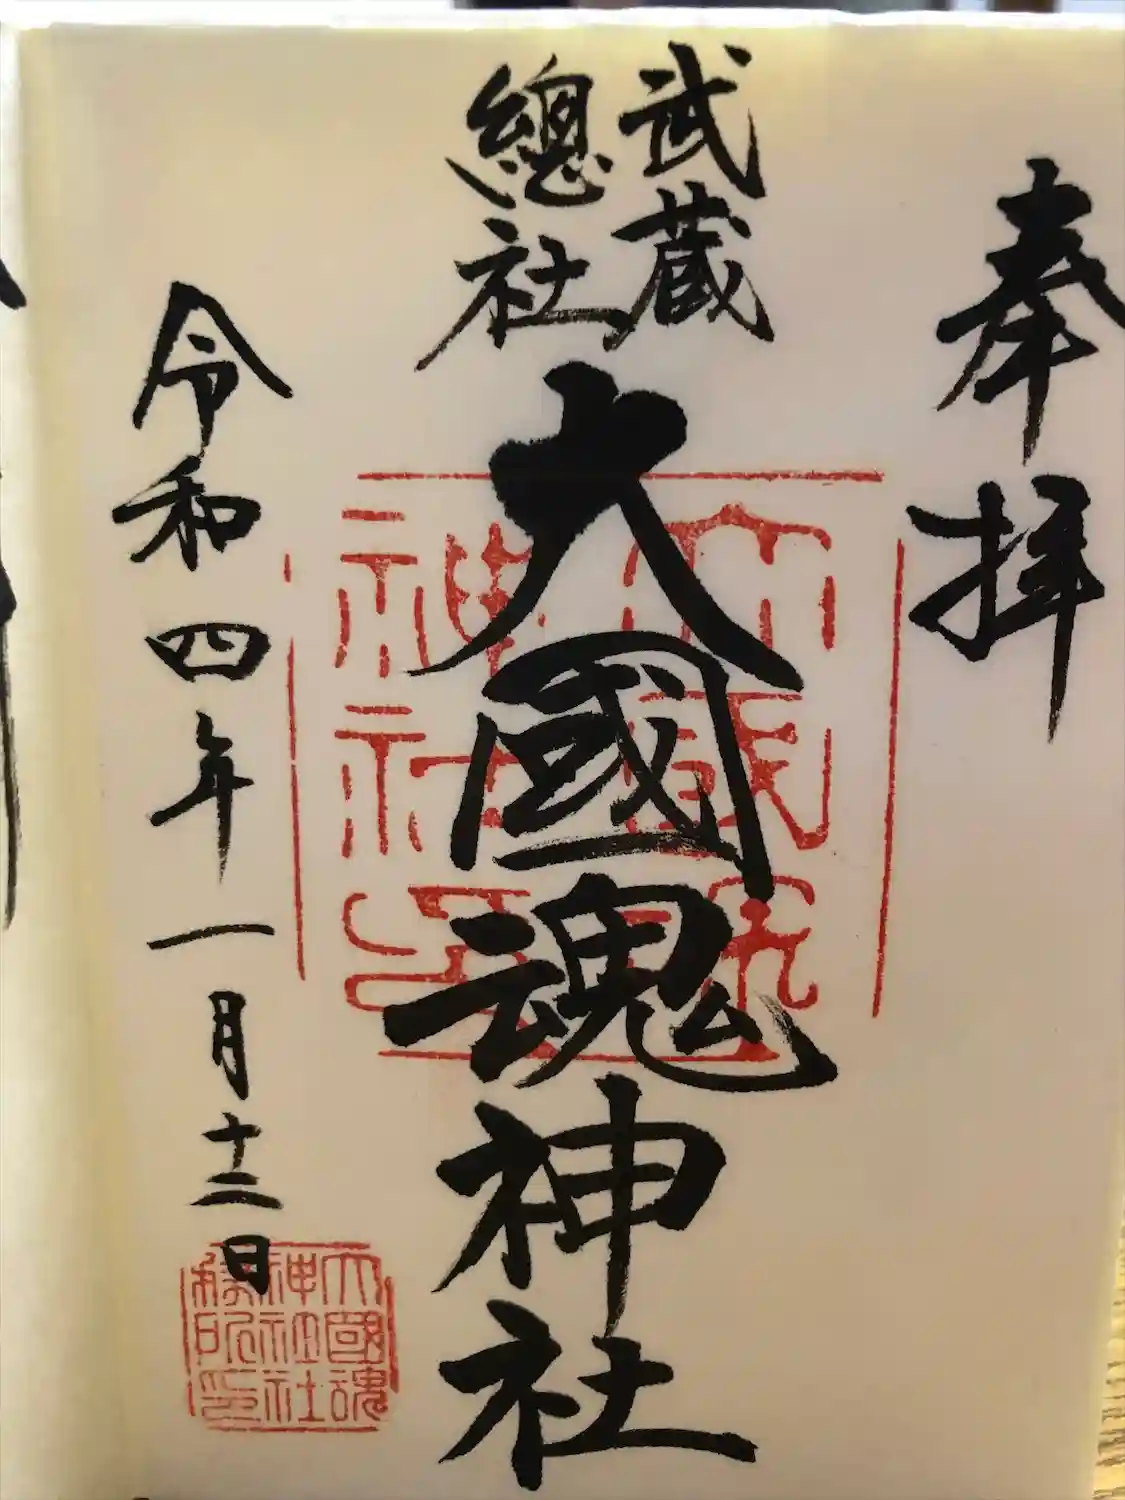 奉拝
武蔵
總社
大國魂神社
令和四年一月十二日
大國魂
神社